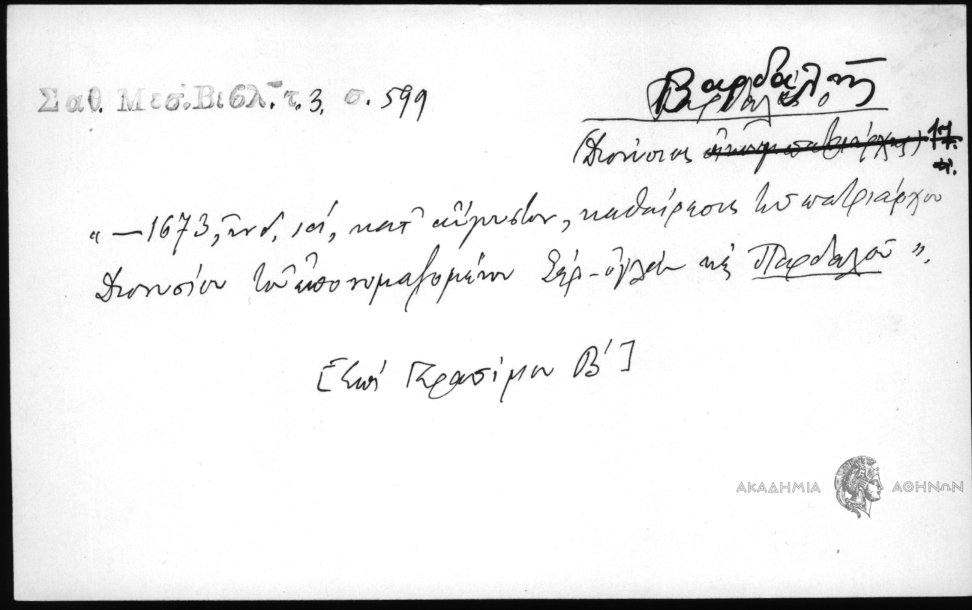 Σαθ. Μεσ. Βιβλ. τ. 3, σ. 599
Βαρδαλῆς
(Διονύσιος
"—1673, ἰνδ. ια', κατ' αὔγουστον, καθαίρεσις τοῦ πατριάρχου
Διονυσίου τοῦ ἐπονομαζομένου Σὲρ-ὀγλοῦ κὲ Παρδαλοῦ".
[ἐπὶ Γερασίμου Β']
ΑΚΑΔΗΜΙΑ ΑΘΗΝΩΝ